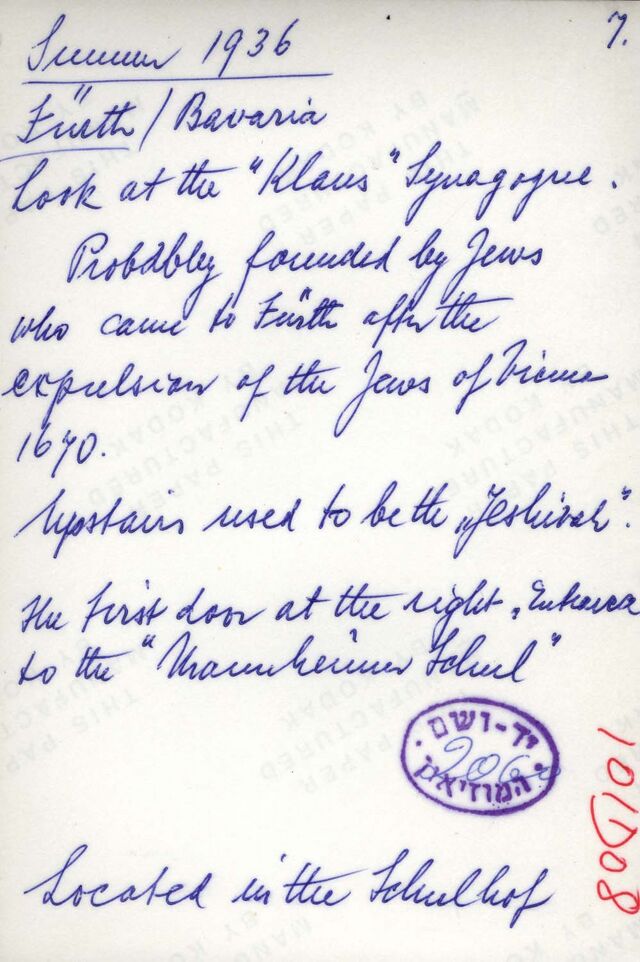 7.
Summer 1936
Fürth / Bavaria
Look at the "Klaus" Synagogue.
Probabbly founded by Jews
who came to Fürth after the
expulsion of the Jews of Vienna
1670.
Upstairs used to be the „Jeshivah".
the first door at the right „Entrance
to the "Mannheimer Schul"
יד-ושם
המוזיאון
Located in the Schulhof
THIS PAPER
MANUFACTURED
BY KODAK